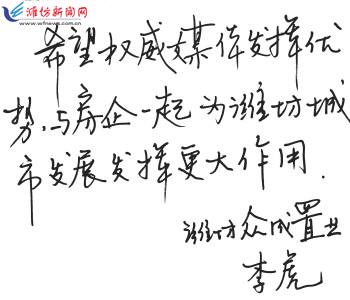 潍坊新闻网
www.wfnews.com.cn
希望权威媒体发挥优
势，与房企一起为潍坊城
市发展发挥更大作用.
潍坊众成置业
李虎